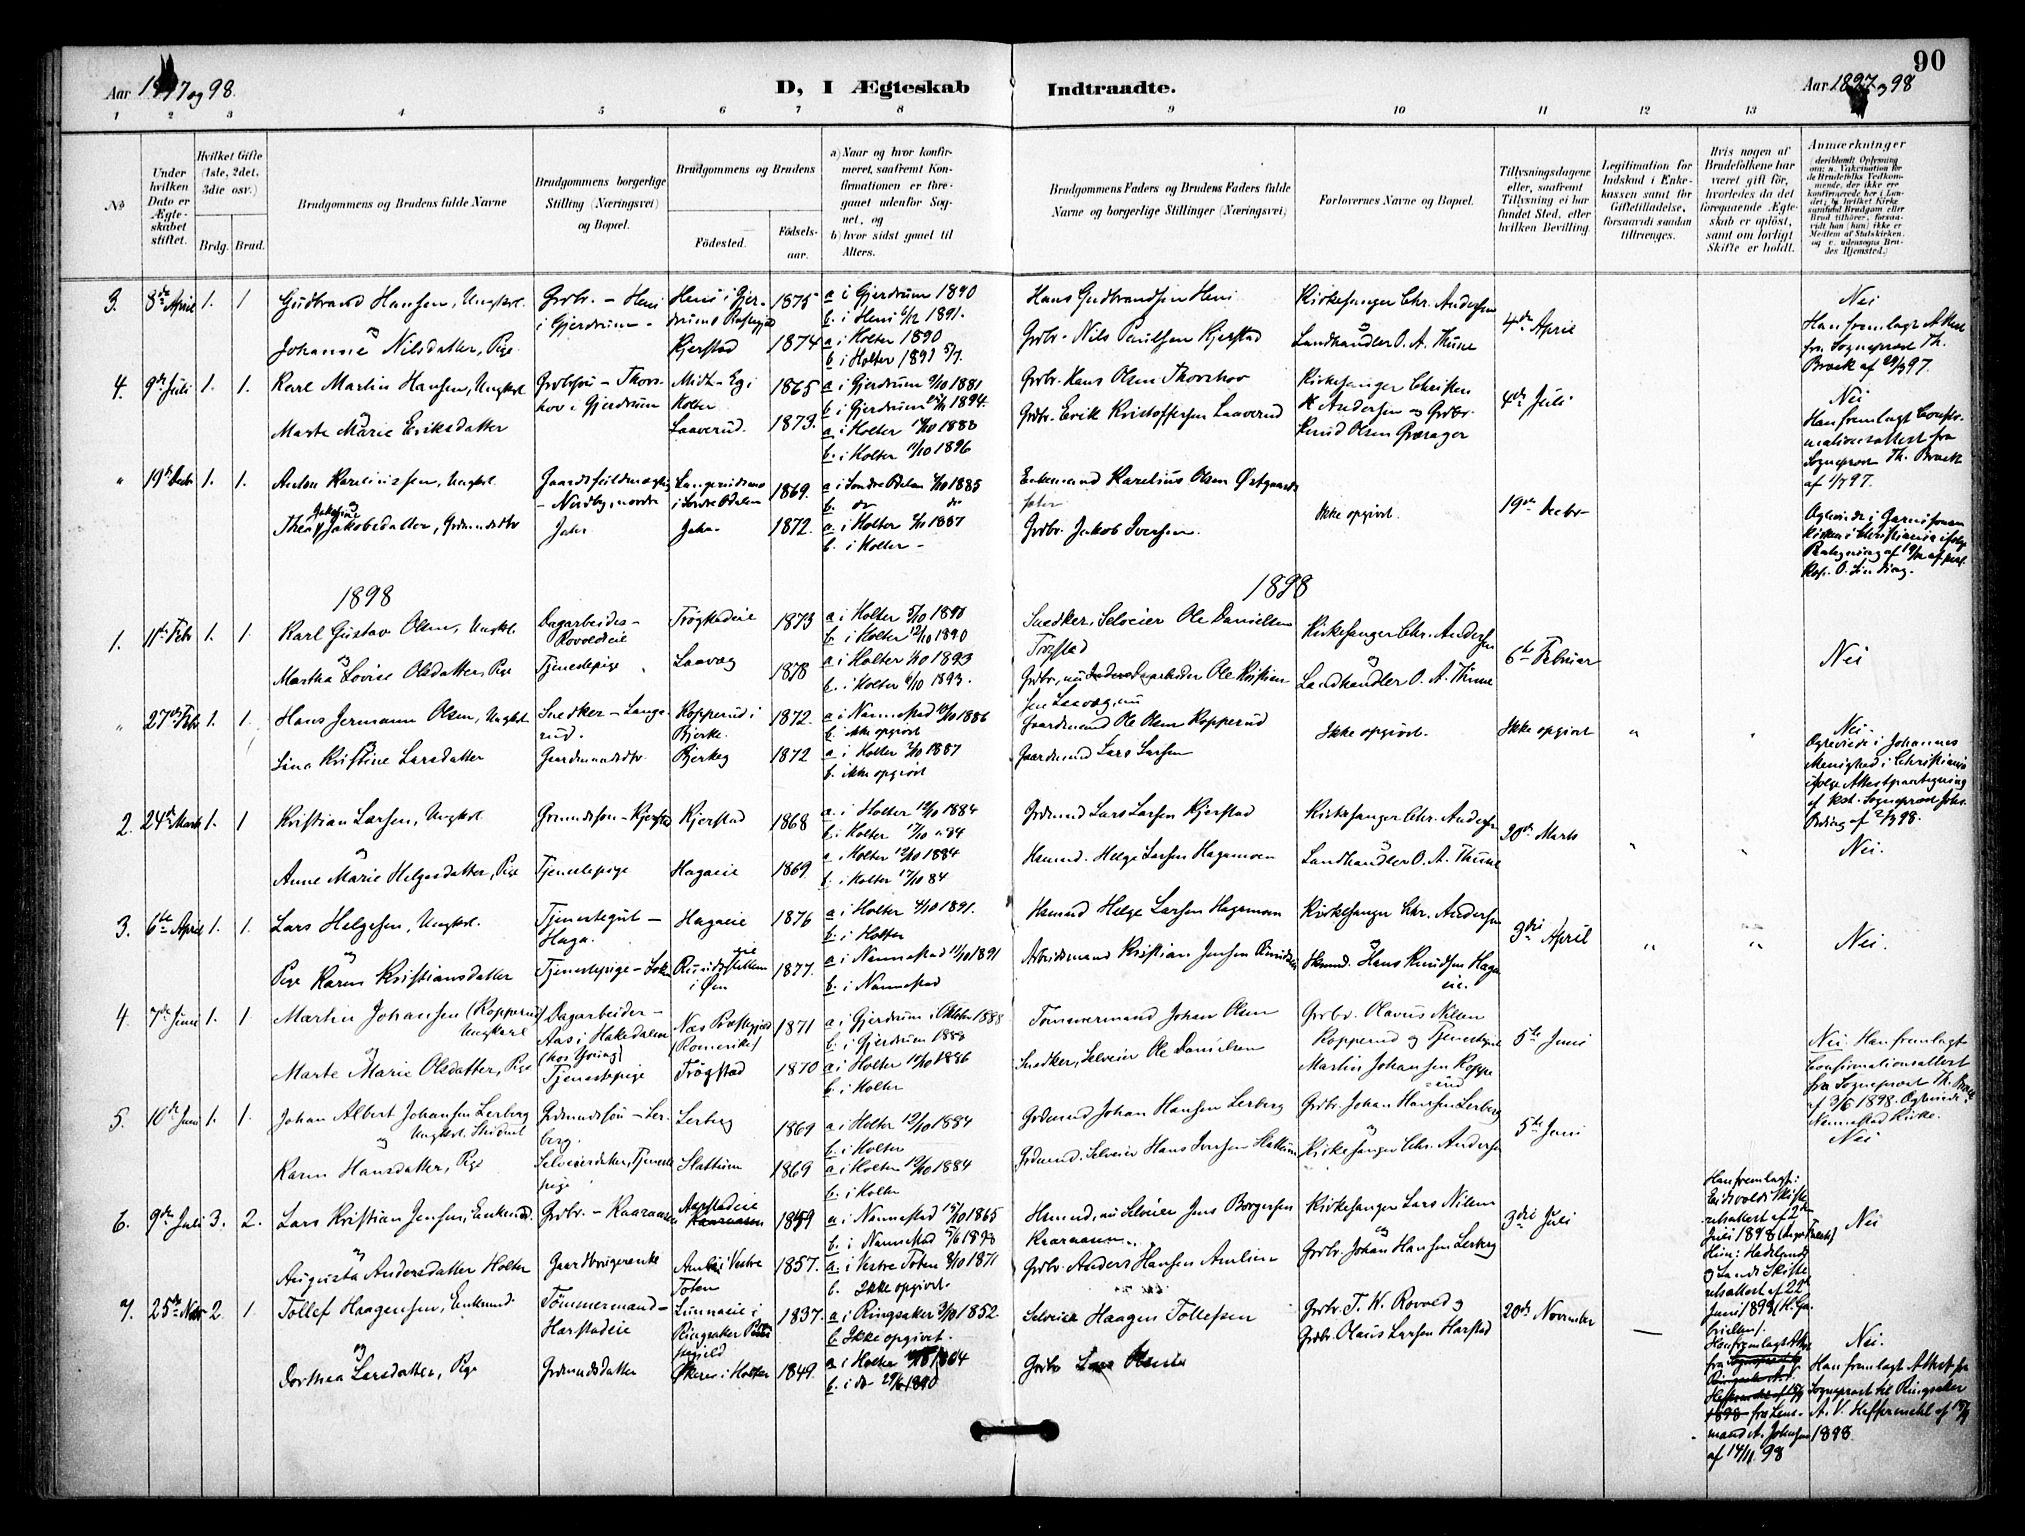 90
Aar 1897 og 98.
D, I Ægteskab Indtraadte.
Aar 1897 og 98
1 2 3 4 5 6 7 8 9 10 11 12 13
No
Under hvilken Dato er Ægteskabet stiftet.
Hvilket Gifte (1ste, 2det, 3die osv.)
Brdg. Brud.
Brudgommens og Brudens fulde Navne
Brudgommens borgerlige Stilling (Næringsvei) og Bopæl.
Brudgommens og Brudens
Fødested.
Fødselsaar.
a) Naar og hvor konfirmeret, saafremt Konfirmationen er foregaaet udenfor Sognet, og
b) hvor sidst gaaet til Alters.
Brudgommens Faders og Brudens Faders fulde Navne og borgerlige Stillinger (Næringsvei)
Forlovernes Navne og Bopæl.
Tillysningsdagene eller, saafremt Tillysning ei har fundet Sted, efter hvilken Bevilling.
Legitimation for Indskud i Enkekassen samt for Giftetilladelse, forsaavidt saadan tiltrænges.
Hvis nogen af Brudefolkene har været gift før, hvorledes da det foregaaende Ægteskab er opløst, samt om lovligt Skifte er holdt.
Anmærkninger
3. 8de April 1. 1
Gudbrand Hansen, Ungkrl.
og
Johanne Nilsdatter, Pige
Grdbr. - Heni
i Gjerdrum -
Heni i Gjerdrums Præstegjæld
Kjerstad
1875
1874
a i Gjerdrum 1890
b. i Heni 6/12 1891.
a i Holter 1890
b. i Holter 1891 5/7.
Hans Gudbrandsen Heni
Grdbr. Nils Paulsen Kjerstad
Kirkesanger Chr. Andersen
og
Landhandler O. A. Thune
4de April
Nei
Han fremlagt Attest
fra Sogneprest Th.
Broch af 29/3 97.
4. 9de Juli 1. 1.
Karl Martin Hansen, Ungkrl.
og
Marte Marie Eriksdatter
Grdbrsøn - Thorshov i Gjerdrum
Midt-Eg i
Holter
Laaverud.
1865
1873.
a i Gjerdrum 9/10 1881
b i Gjerdrum 1894.
a i Holter 1888
b. i Holter 11/10 1896
Grdbr. Hans Olsen Thorshov
Grdbr. Erik Kristoffersen Laaverud
Kirkesanger Christen
K Andersen og Grdbr.
Knud Olsen Græsager
4de Juli
Nei
Han fremlagt Confirmationsattest fra
Sogneprest Th. Broch
af 1/7 97.
" 19de Decbr 1. 1.
Anton Kareliussen, Ungkrl.
og
Thea Jakobine Jakobsdatter, Grdmandsdtr
Gaardsfuldmægtig
- Nordby, nordre
Jahr
i Søndre Odalen
Jahr
1869.
1872.
a i Søndre Odalen 1/10 1885
b. do do
a. i Holter 1/10 1887
b. i Holter -
Enkemand Karelius Olsen Østgaard
Grdbr. Jakob Iversen.
Ikke opgivet.
19de Decbr
Ogteviede i Garnisonen
Kirken i Christiania ifølge
1898
1898
1. 11te Febr 1. 1.
Karl Gustav Olsen, Ungkrl.
og
Martha Lovise Olsdatter, Pige
Dagarbeider -
Rovoldeie
Tjenestepige
Trøgstadeie
Laaveg
1873
1878
a i Holter 5/10 1890
b. i Holter 12/10 1890
a. i Holter 1/10 1893
b. i Holter 8/10 1893.
Snedker, Selveier Ole Danielsen
Trøgstad
Grdbr, nu Dagarbeider Ole Kristiansen Laaveg, nu
Kirkesanger Chr. Andersen
og
Landhandler O. A. Thune
6te Februar
Nei
" 27de Febr 1. 1
Hans Jermann Olsen, Ungkrl.
og
Lina Kristine Larsdatter
Snedker - Langerud.
Gaardmandsdtr.
Kopperud i
Bjerke.
Bjerkeg
1872.
1872
a. i Nannestad 10/10 1886
b. ikke opgivet
a. i Holter 2/10 1887
b. ikke opgivet
Gaardmand Ole Olsen Kopperud
Gaardmand Lars Larsen
Ikke opgivet.
Ikke opgivet
"
Nei.
Ogteviede i Johannes
Menighed i Christiania
ifølge Attestpaategning
af Rest. Sogneprest Johs.
Broing af 2/3 98.
2. 24de Marts 1. 1
Kristian Larsen, Ungkrl.
og
Anne Marie Helgesdatter, Pige
Grmandssøn - Kjerstad
Tjenestepige
Kjerstad
Hagaeie
1868
1869
a. i Holter 12/10 1884
b. i Holter 17/10 84
a. i Holter 12/10 1884
b. i Holter 17/10 84
Grdmand Lars Larsen Kjerstad
Hsmnd. Helge Larsen Hagamoen
Kirkesanger Chr. Andersen
Landhandler O. A. Thune
20de Marts
"
Nei.
3. 6te April 1. 1.
Lars Helgesen, Ungkrl.
og
Pige Karen Kristiansdatter
Tjenestegut -
Haga.
Tjenestepige -
Hagaeie
1876
1877.
a i Holter 4/10 1891.
b. i Holter
a. i Nannestad 11/10 1891
b. i Nannestad
Hsmnd Helge Larsen Hagamoen
Arbeidsmand Kristian Jensen
Kirkesanger Chr. Andersen
og
Hsmnd. Hans Knudsen Hagaeie.
3die April
"
"
Nei.
4. 7de Juni 1. 1
Martin Johansen (Kopperud)
Ungkarl
og
Marte Marie Olsdatter, Pige
Dagarbeider -
Aas i Hakedalen
(hos Young)
Tjenestepige
Næs Præstegjæld
(Romerike)
Trøgstad
1871
1870
a. i Gjerdrum i Oktober 1888
b. i Gjerdrum 1888
a. i Holter 10/10 1886
b. i Holter
Tømmermand Johan Olsen
Snedker, Selveier Ole Danielsen
Grdbr. Olavus Nilsen
Kopperud og Tjenestegut
Martin Johansen Kopperud
5te Juni
Nei. Han fremlagt
Confirmationsattest
fra Sogneprest Th. Broch
af 3/6 1898. Ogteviede i
Nannestad Kirke.
5. 10de Juni 1. 1.
Johan Albert Johansen Lerberg
Ungkrl. Student
og
Karen Hansdatter, Pige
Grdmandssøn - Lerberg.
Selveiersdatter, Tjenestepige
Lerberg
Slattum
1869
1869
a i Holter 12/10 1884
b. i Holter
a i Holter 12/10 1884
b. i Holter
Grdmand Johan Hansen Lerberg
Grdmand. Selveier Hans Iversen Slattum
Grdbr. Johan Hansen Lerberg
og
Kirkesanger Chr. Andersen
5te Juni
Nei
6. 9de Juli 3. 2.
Lars Kristian Jensen, Enkemd.
og
Augusta Andersdatter Holter
Grdbr. - Kaaraasen
Gaardbrugerenke
Aarstadeie
Kaaraasen
Amlien Vestre
Toten
1849
1857.
a. i Nannestad 15/10 1865
b. i Nannestad 5/6 1898
a. i Vestre Toten 8/10 1871
b. Ikke opgivet.
Hsmnd, nu Selveier Jens Borgersen
Kaaraasen..
Grdbr. Anders Hansen Amlien
Kirkesanger Lars Nilsen
og
Grdbr. Johan Hansen Lerberg
3die Juli
Han fremlagt:
Eidsvolds Skifteretsattest af 2den
Juli 1898
Hun: Hadelands
og Lands Skifteretsattest af 22de
Juni 1898
Nei
7. 25de Nov. 2. 1.
Tollef Haagensen, Enkmnd.
og
Dorthea Larsdatter, Pige
Tømmermand -
Harstadeie
Grdmandsdatter
Ringsaker Præstegjæld
Økeren i Holter
1837.
1849.
a i Ringsaker 3/10 1852
b. Ikke opgivet.
a. i Holter 1864
b. i do 29/6 1890
Selveier Haagen Tollefsen
Grdbr Lars
Grdbr. T. K. Rovold og
Grdbr. Olaus Larsen Harstad
20de November
—
Han fremlagt Attest
fra
1898 fra Lensmand A. Johnsen
af 14/11 98
Nei.
Han fremlagt Attest fra
Sogneprest til Ringsaker
A. V. Heffermehl af 15/9
1898.